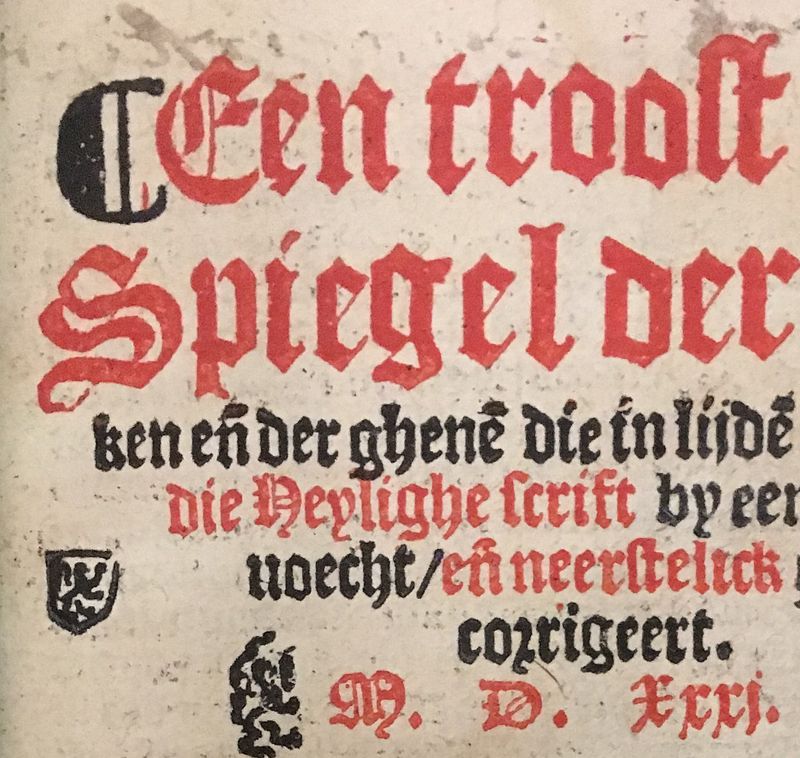 ⸿Een trooſt
Spiegel der
ken en̄ der ghenē die in lijdē
die Heylighe ſcrift by een
uoecht/en̄ neerſtelick
corrigeert.
M. D. Xxxj.